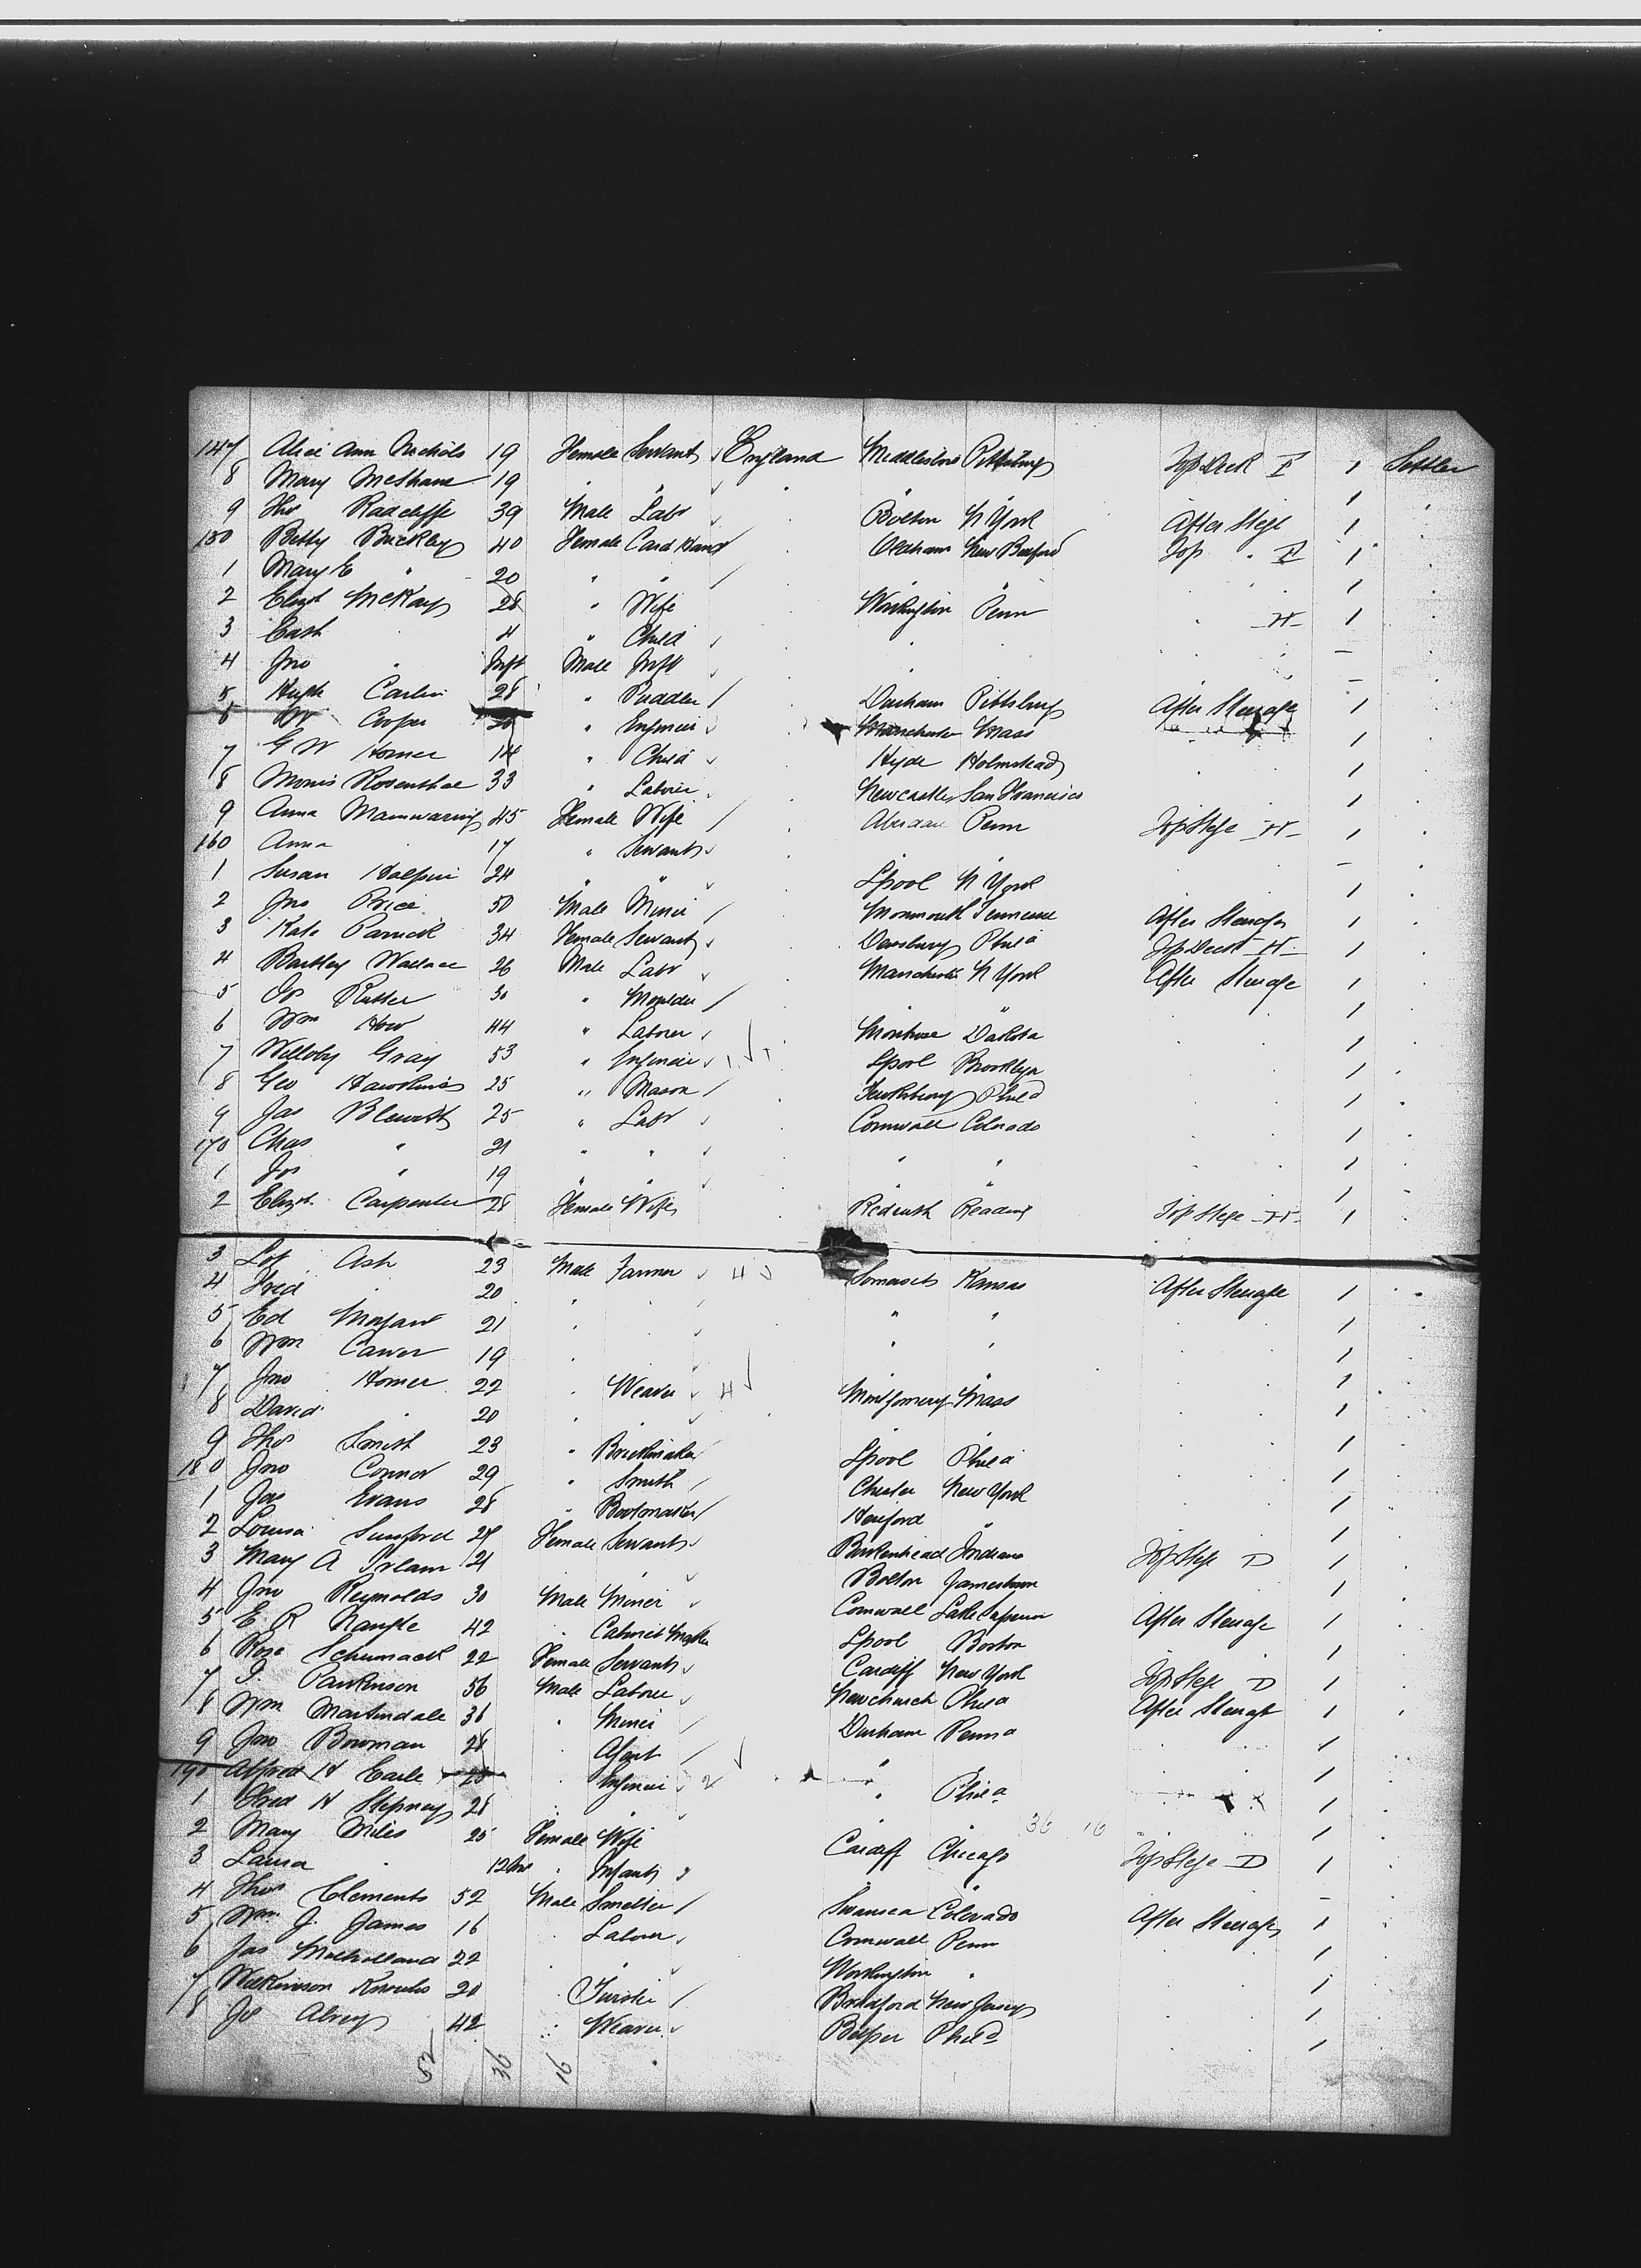 147 Alice Ann Nichols 19 Female Servant England Middlesboro Pittsburg Top Deck F 1 Settler
8 Mary McShane 19 " " " "
9 Thos Radcliffe 39 Male Labr Bolton N York After Stege 1
150 Betty Buckley 40 Female Card Hand Oldham New Bedford Top " F 1
1 Mary E " 20 " " 1
2 Elizth McKay 28 " Wife Workington Penn H 1
3 Cath 4 " Child
4 Jno " Inft Male Inft
5 Hugh Carlin 28 " Puddler Durham Pittsburg After Steerage 1
6 Wm Cooper " Engineer Manchester Mass 1
7 G W Homer 14 " Child Hyde Holmstead 1
8 Morris Rosenthal 33 " Laborer Newcastle San Francisco 1
9 Anna Mainwaring 45 Female Wife Aberdare Penn Top Stege H 1
160 Anna 17 " Servant
1 Susan Halpin 24 " " Lpool N York 1
2 Jno Price 50 Male Miner Monmouth Tennessee After Steerage 1
3 Kate 34 Female Servant Phila Top Deck H 1
4 Bartley Wallace 26 Male Labr Manchester N York After Steerage 1
5 Rutter 30 " Moulder " " 1
6 Wm How 44 " Laborer Montrose Dakota 1
7 Willoby Gray 53 " Engineer Lpool Brooklyn 1
8 Geo Hawkins 25 " Mason Tewksbury Phila 1
9 Jas Blewett 25 " Labr Cornwall Colorado 1
170 Chas " 21 " " " " 1
1 Jos " 19 " " " " 1
2 Elizth Carpenter 28 Female Wife Redruth Reading Top Stege H 1
3 Lot Ash 23 Male Farmer 4 Somerset Kansas After Steerage 1
4 Fred 20 " " " " 1
5 Ed 21 " " " 1
6 Wm Carver 19 " " " 1
7 Jno Homer 22 " Weaver 4 Montgomery Mass 1
8 David 20 " " " " 1
9 Thos Smith 23 " Brickmaker Lpool Phila 1
180 Jno Connor 29 " Smith Chester New York 1
1 Jas Evans 28 " Bootmaker Hereford " 1
2 Louisa Female Servant Birkenhead Indiana Top Stege D 1
3 Mary A Irlam 21 " " Bolton Jamestown 1
4 Jno Reynolds 30 Male Miner Cornwall Lake Superior After Steerage 1
5 E R Nangle 42 " Cabinet Maker Lpool Boston 1
6 Rose Schumack 22 Female Servant Cardiff New York Top Stege D 1
7 Parkinson 56 Male Laborer Newchurch Phila After Steerage 1
8 Wm Martindale 36 " Miner Durham Penna 1
9 Jno Bowman 28 " Agent " " 1
190 Alfred H Earle " Engineer 2 " Phila 1
1 Fred H Stepney 28 " " " " 1
2 Mary Miles 25 Female Wife Cardiff Chicago 36 16 Top Stege D 1
3 Laura 12 mo " Infant " "
4 Thos Clements 52 Male Smelter Swansea Colorado After Steerage 1
5 Wm J. James 16 " Laborer Cornwall Penn 1
6 Jas Mulholland 22 " " Workington " 1
7 Wilkinson Knowles 20 " Bradford New Jersey 1
8 42 " Weaver Belper Phila 1
52 36 16